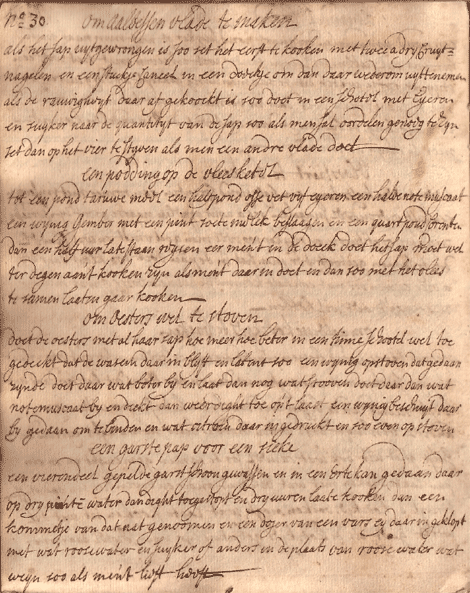 No 30 om aalbessen vlade te maken
als het sap uytgewrongen is soo set het eerst te kooken met twee a dry kruyt=
nagelen en een stuckje caneel in een doeckje om dan daar wederom uyt te nemen
als de rauwigheyt daar af gekoockt is soo doet in een schotel met eyeren
en suyker naar de quantityt van de sap soo als men sal oordelen genoeg te zyn
set dan op het vier te styven als men een andre vlade doet
een podding op de vleesketel
tot een pond taruwe meel een half pond osse vet vyf eyeren een halve note muscaat
een wynig gember met een pint soete melk beslaagen en een quart pond corente
dan een half uur laate staan rysen eer ment in de doeck doet het sap moet wel
ter degen aant kooken zyn als ment daar in doet en dan soo met het vlees
te samen laaten gaar kooken
om oesters wel te stoven
doet de oesters met al haar sap hoe meer hoe beter in een tinne schootel wel toe
gedeckt dat de wasem daar in blyft en latent soo een wynig opstoven dat gedaan
zynde doet daar wat boter by en laat dan nog wat stooven doet daar dan wat
notemuscaat by en deckt dan weer digt toe op't laast een wynig beschuyt daar
by gedaan om te binden en wat citroen daar in gedruckt en soo even op stoven
een garste pap voor een sieke
een vierendeel gepelde garst schoon gewassen en in een kan gedaan daar
op dry pinte water dan digt toegestopt en dry uuren laate kooken dan een
kommetje van dat nat genoomen en een dojer van een vars ey daar in geklopt
met wat roosewater en suyker of anders in de plaats van roose water wat
weyn soo als ment liefst heeft